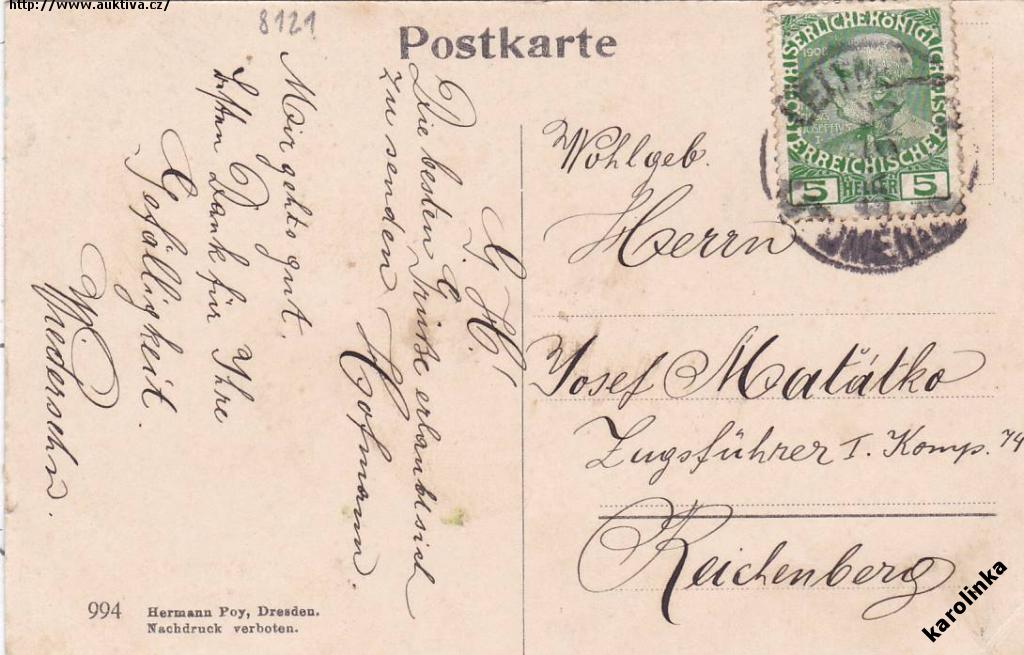 http://www.auktiva.cz/
8121
Postkarte
G. H.
Die besten Grüße erlaubt sich
zu senden
Hofmann.
Mir gehts gut.
Besten Dank für Ihre
Gefälligkeit.
W.
KAISERLICHEKÖNIGLICHE
ÖSTERREICHISCHE
1908
5 HELLER 5
Wohlgeb.
Herrn
Josef Mat'átko
Zugsführer I. Komp. 74
Reichenberg
994
Hermann Poy, Dresden.
Nachdruck verboten.
karolinka